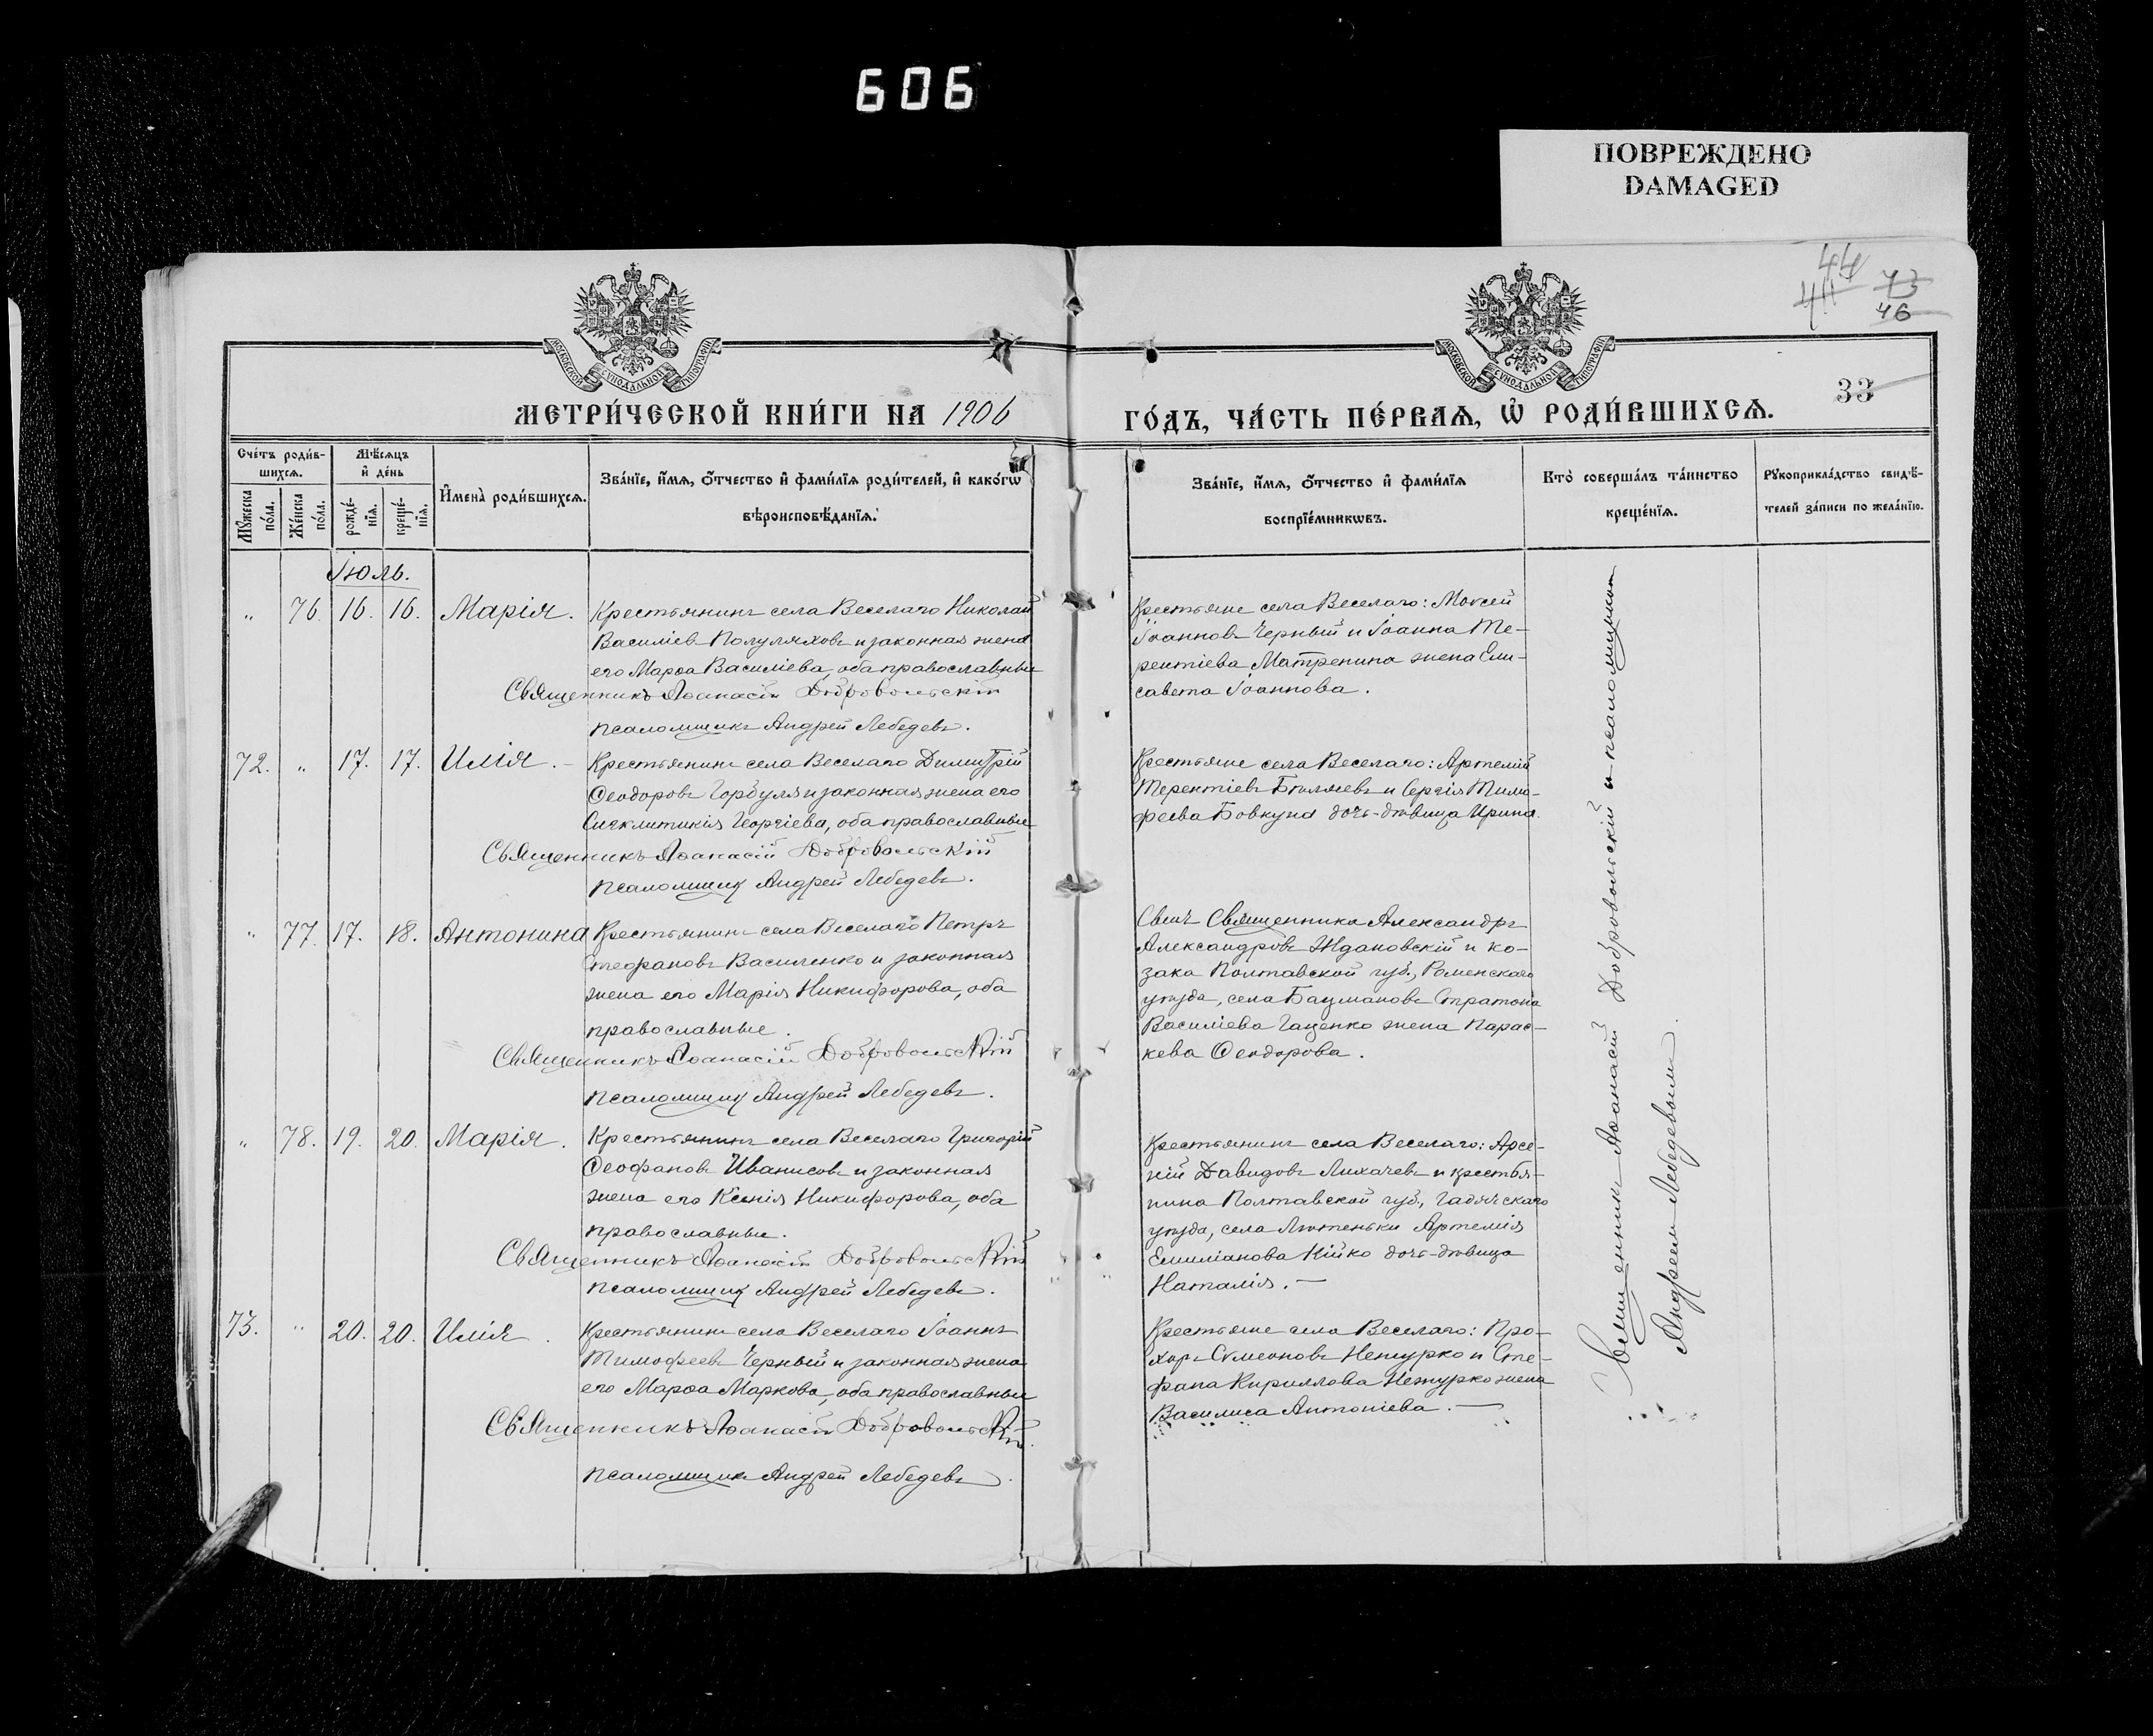 606
ПОВРЕЖДЕНО
DAMAGED
44
41 73
46
33
МОСКОВСКОЙ СУНОДАЛЬНОЙ ТИПОГРАФІИ
МОСКОВСКОЙ СУНОДАЛЬНОЙ ТИПОГРАФІИ
МЕТРИ́ЧЕСКОЙ КНИ́ГИ НА 1906
ГО́ДЪ, ЧА́СТЬ ПЕ́РВАѦ, Ѡ РОДИ́ВШИХСѦ.
Сче́тъ роди́в-
шихсѧ.
Мꙋ́жеска по́ла.
Же́нска по́ла.
Мѣ́сѧцъ
и де́нь
рожде́-
нїѧ.
креще́-
нїѧ.
И҆мена̀ роди́вшихсѧ.
Зва́нїе, и҆́мѧ, ѻ҆́тчество и҆ фами́лїѧ роди́телей, и҆ како́гѡ
вѣроисповѣ́данїѧ.
Зва́нїе, и҆́мѧ, ѻ҆́тчество и҆ фами́лїѧ
воспрїе́мникѡвъ.
Кто̀ соверша́лъ та́инство
креще́нїѧ.
Рꙋкоприкла́дство свидѣ́-
телей за́писи по жела́нїю.
Іюль.
„ 76. 16. 16. Марія. Крестьянинъ села Веселаго Николай
Василіевъ Полуляховъ и законная жена
его Марѳа Василіева, оба православные
Священникъ Аѳанасій Добровольскій
псаломщикъ Андрей Лебедевъ.
Крестьяне села Веселаго: Моѵсей
Іоанновъ Черный и Іоанна Те-
рентіева Матренина жена Ели-
савета Іоаннова.
72. „ 17. 17. Илія. – Крестьянинъ села Веселаго Димитрій
Ѳеодоровъ Горбуля и законная жена его
Сигклитикія Георгіева, оба православные
Священникъ Аѳанасій Добровольскій
псаломщикъ Андрей Лебедевъ.
Крестьяне села Веселаго: Артемій
Терентіевъ Бѣляевъ и Сергія Тимо-
феева Бовкуна дочь-дѣвица Ирина.
„ 77. 17. 18. Антонина Крестьянинъ села Веселаго Петръ
Стефановъ Василенко и законная
жена его Марія Никифорова, оба
православные.
Священникъ Аѳанасій Добровольскій
псаломщикъ Андрей Лебедевъ.
Сынъ Священника Александръ
Александровъ Ждановскій и ко-
зака Полтавской губ., Роменскаго
уѣзда, села Бацмановъ Стратона
Василіева Гаценко жена Парас-
кева Ѳеодорова.
„ 78. 19. 20. Марія. Крестьянинъ села Веселаго Григорій
Ѳеофановъ Иванисовъ и законная
жена его Ксенія Никифорова, оба
православные.
Священникъ Аѳанасій Добровольскій
псаломщикъ Андрей Лебедевъ.
Крестьянинъ села Веселаго: Арсе-
ній Давидовъ Лихачевъ и крестья-
нина Полтавской губ., Гадячскаго
уѣзда, села Лютеньки Артемія
Емиліанова Кійко дочь-дѣвица
Наталія. —
73. „ 20. 20. Илія. Крестьянинъ села Веселаго Іоаннъ
Тимофеевъ Черный и законная жена
его Марѳа Маркова, оба православные
Священникъ Аѳанасій Добровольскій.
псаломщикъ Андрей Лебедевъ.
Крестьяне села Веселаго: Про-
хоръ Сѵмеоновъ Нежурко и Сте-
фана Кириллова Нежурко жена
Василиса Антоніева. —
Священникъ Аѳанасій Добровольскій и псаломщикомъ
Андреемъ Лебедевымъ.